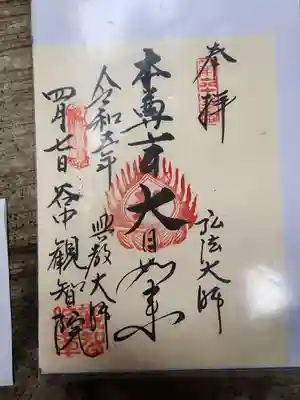 奉拝
弘法大師
本尊 大日如来
興教大師
令和五年
四月七日 谷中観智院